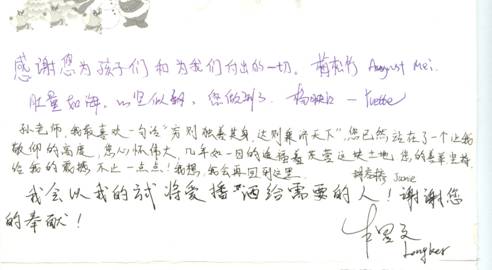 感谢您为孩子们和为我们付出的一切。 August Mei.
肚量如海，心坚似钢，您做到了 — Yvette
孙老师，我最喜欢一句话“穷则独善其身，达则兼济天下”，您已然站在了一个让我
敬仰的高度，您心怀伟大，几年如一日的这块土地，您的善举坚持
给我的震撼不止一点点！我想，我会再回到这里 Jane
我会以我的式将爱播洒给需要的人！谢谢您
的奉献！
Longker